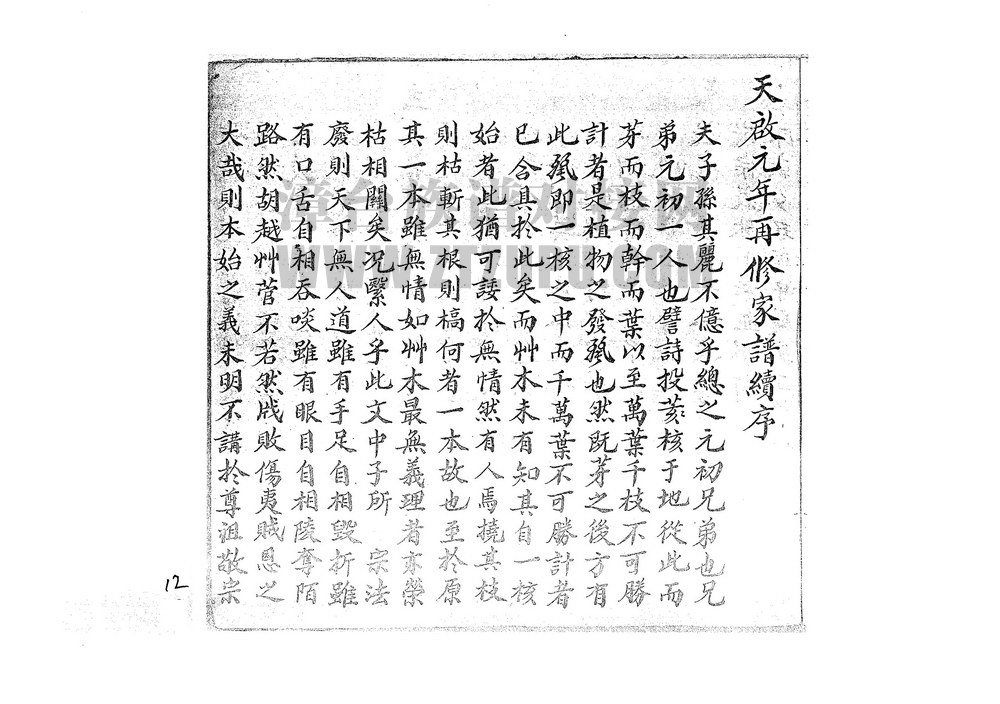 天啟元年再修家譜續序
夫子孫其麗不億乎總之元初兄弟也兄
弟元初一人也譬詩投荄核于地從此而
芽而枝而幹而葉以至萬葉千枝不可勝
計者是植物之發然既芽之後方有
此即一核之中而千萬葉不可勝計者
已含具於此矣而艸木未有知其自一核
始者此猶可諉於無情然有人焉撓其枝
則枯斬其根則槁何者一本故也至於原
其一本雖無情如艸木最無義理者亦榮
枯相關矣况繄人乎此文中子所 宗法
廢則天下無人道雖有手足自相毀折雖
有口舌自相吞啖雖有眼目自相陵奪陌
路然胡越艸菅不若然戕敗傷夷賊恩之
大哉則本始之義未明不講於尊沮敬宗
12
漳台族谱对接网
WWW.ZTZUPU.COM